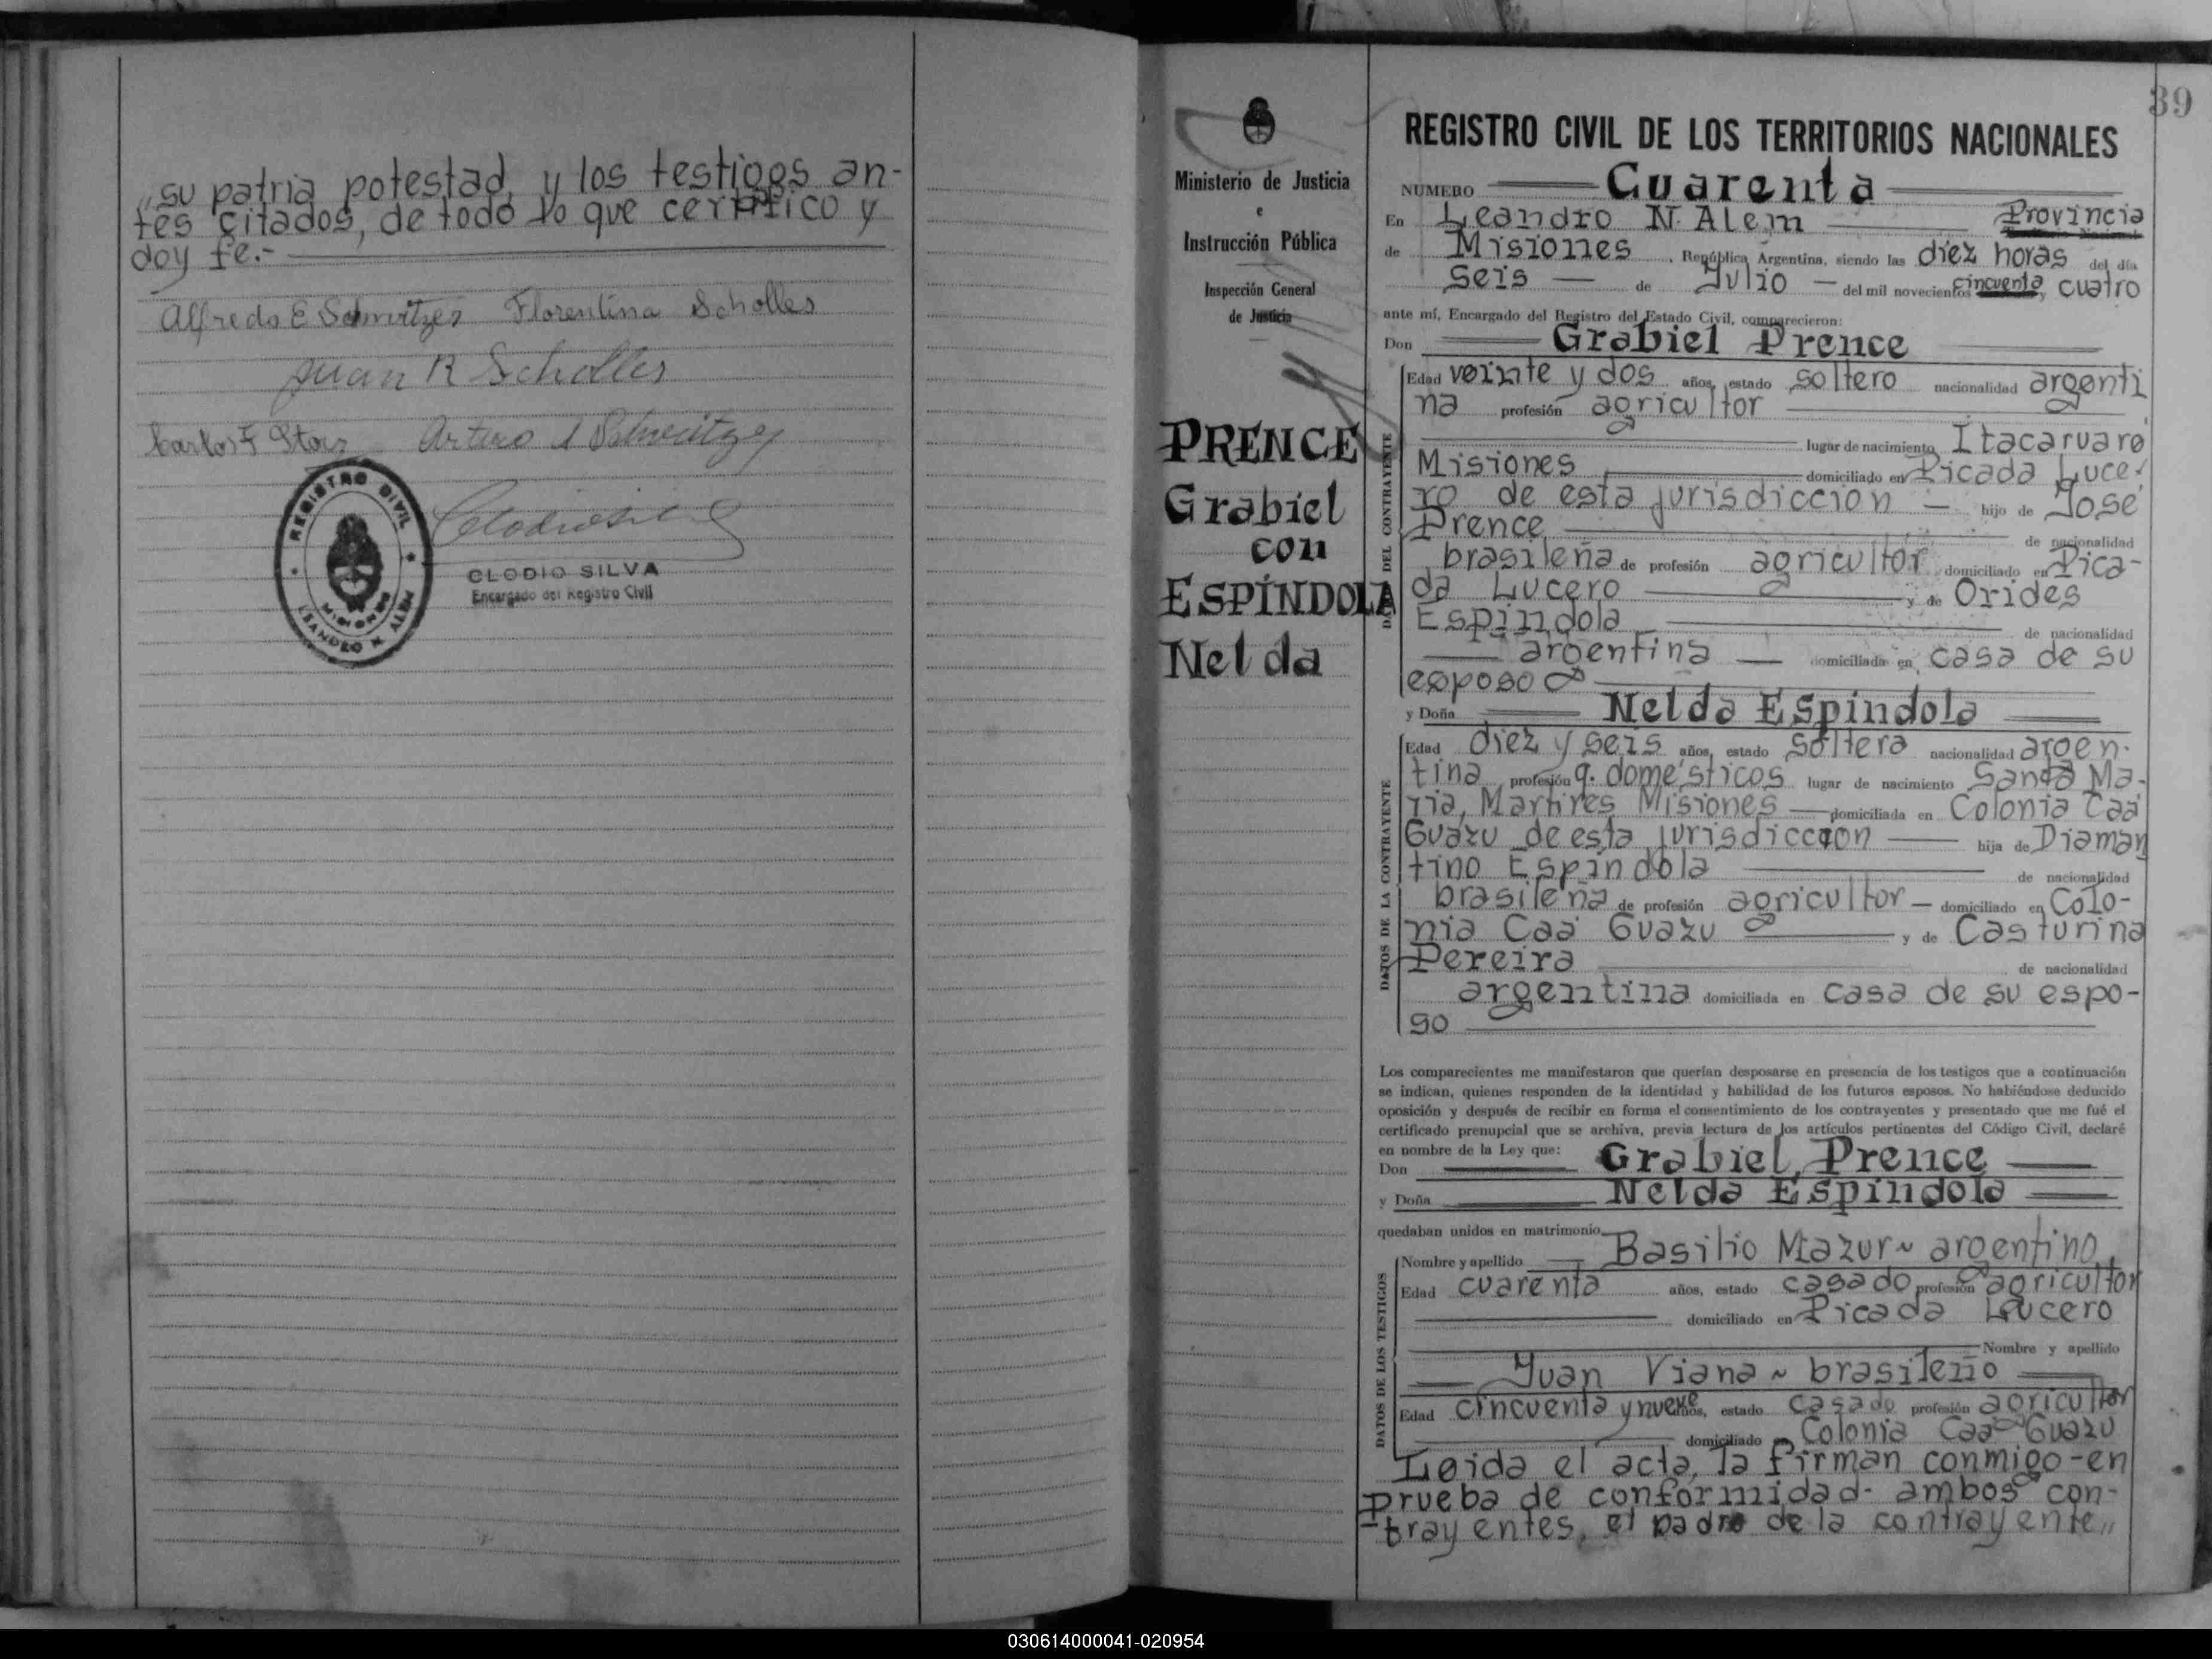 „su patria potestad, y los testigos an-
tes citados, de todo lo que certifico y
doy fe.-
Alfredo E Schwitzer Florentina Scholles
Juan R Scholles
Carlos F Arturo A Schweitzer
REGISTRO CIVIL
MISIONES
LEANDRO N. ALEM
CLODIO SILVA
Encargado del Registro Civil
39
Ministerio de Justicia
e
Instrucción Pública
Inspección General
de Justicia
PRENCE
Grabiel
con
ESPÍNDOLA
Nelda
REGISTRO CIVIL DE LOS TERRITORIOS NACIONALES
NUMERO Cuarenta
En Leandro N. Alem Provincia
de Misiones, República Argentina, siendo las diez horas del día
seis de Julio del mil novecientos cincuenta y cuatro
ante mí, Encargado del Registro del Estado Civil, comparecieron:
Don Grabiel Prence
DATOS DEL CONTRAYENTE
Edad veinte y dos años, estado soltero nacionalidad argenti
na profesión agricultor
lugar de nacimiento Itacaruaré
Misiones domiciliado en Picada Luce-
ro de esta jurisdiccion hijo de José
Prence de nacionalidad
brasileña de profesión agricultor domiciliado en Pica-
da Lucero y de Orides
Espindola de nacionalidad
argentina domiciliada en casa de su
esposo
y Doña Nelda Espindola
DATOS DE LA CONTRAYENTE
Edad diez y seis años, estado soltera nacionalidad argen-
tina profesión q. domésticos lugar de nacimiento Santa Ma-
ria, Martires Misiones domiciliada en Colonia Caá
Guazu de esta jurisdiccion hija de Diaman
tino Espindola de nacionalidad
brasileña de profesión agricultor domiciliado en Colo-
nia Caá Guazu y de Casturina
Pereira de nacionalidad
argentina domiciliada en casa de su espo-
so
Los comparecientes me manifestaron que querían desposarse en presencia de los testigos que a continuación
se indican, quienes responden de la identidad y habilidad de los futuros esposos. No habiéndose deducido
oposición y después de recibir en forma el consentimiento de los contrayentes y presentado que me fué el
certificado prenupcial que se archiva, previa lectura de los artículos pertinentes del Código Civil, declaré
en nombre de la Ley que:
Don Grabiel Prence
y Doña Nelda Espindola
quedaban unidos en matrimonio
DATOS DE LOS TESTIGOS
Nombre y apellido Basilio Mazur ~ argentino
Edad cuarenta años, estado casado profesión agricultor
domiciliado en Picada Lucero
Nombre y apellido
Juan Viana ~ brasileño
Edad cincuenta y nueve años, estado casado profesión agricultor
domiciliado Colonia Caá Guazu
Leida el acta, la firman conmigo-en
prueba de conformidad- ambos con-
trayentes, el padre de la contrayente„
030614000041-020954